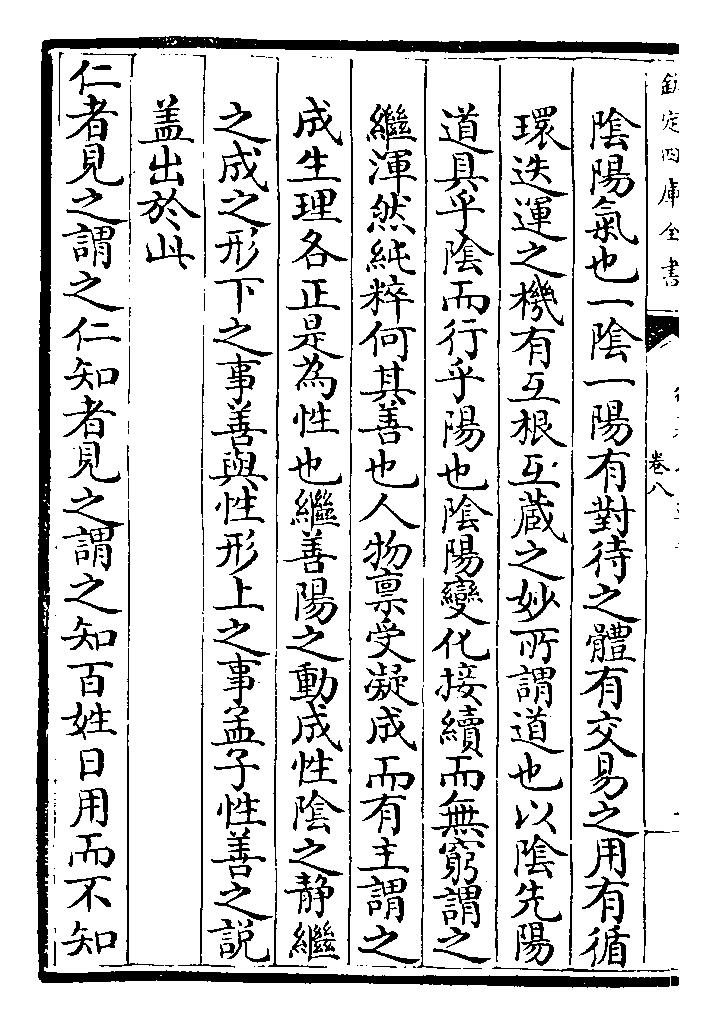 欽定四庫全書
卷八
陰陽氣也一陰一陽有對待之體有交易之用有循
環迭運之機有互根互蔵之妙所謂道也以陰先陽
道具乎陰而行乎陽也陰陽變化接續而無窮謂之
繼渾然純粹何其善也人物禀受凝成而有主謂之
成生理各正是為性也繼善陽之動成性陰之静繼
之成之形下之事善與性形上之事孟子性善之説
盖出於此
仁者見之謂之仁知者見之謂之知百姓日用而不知